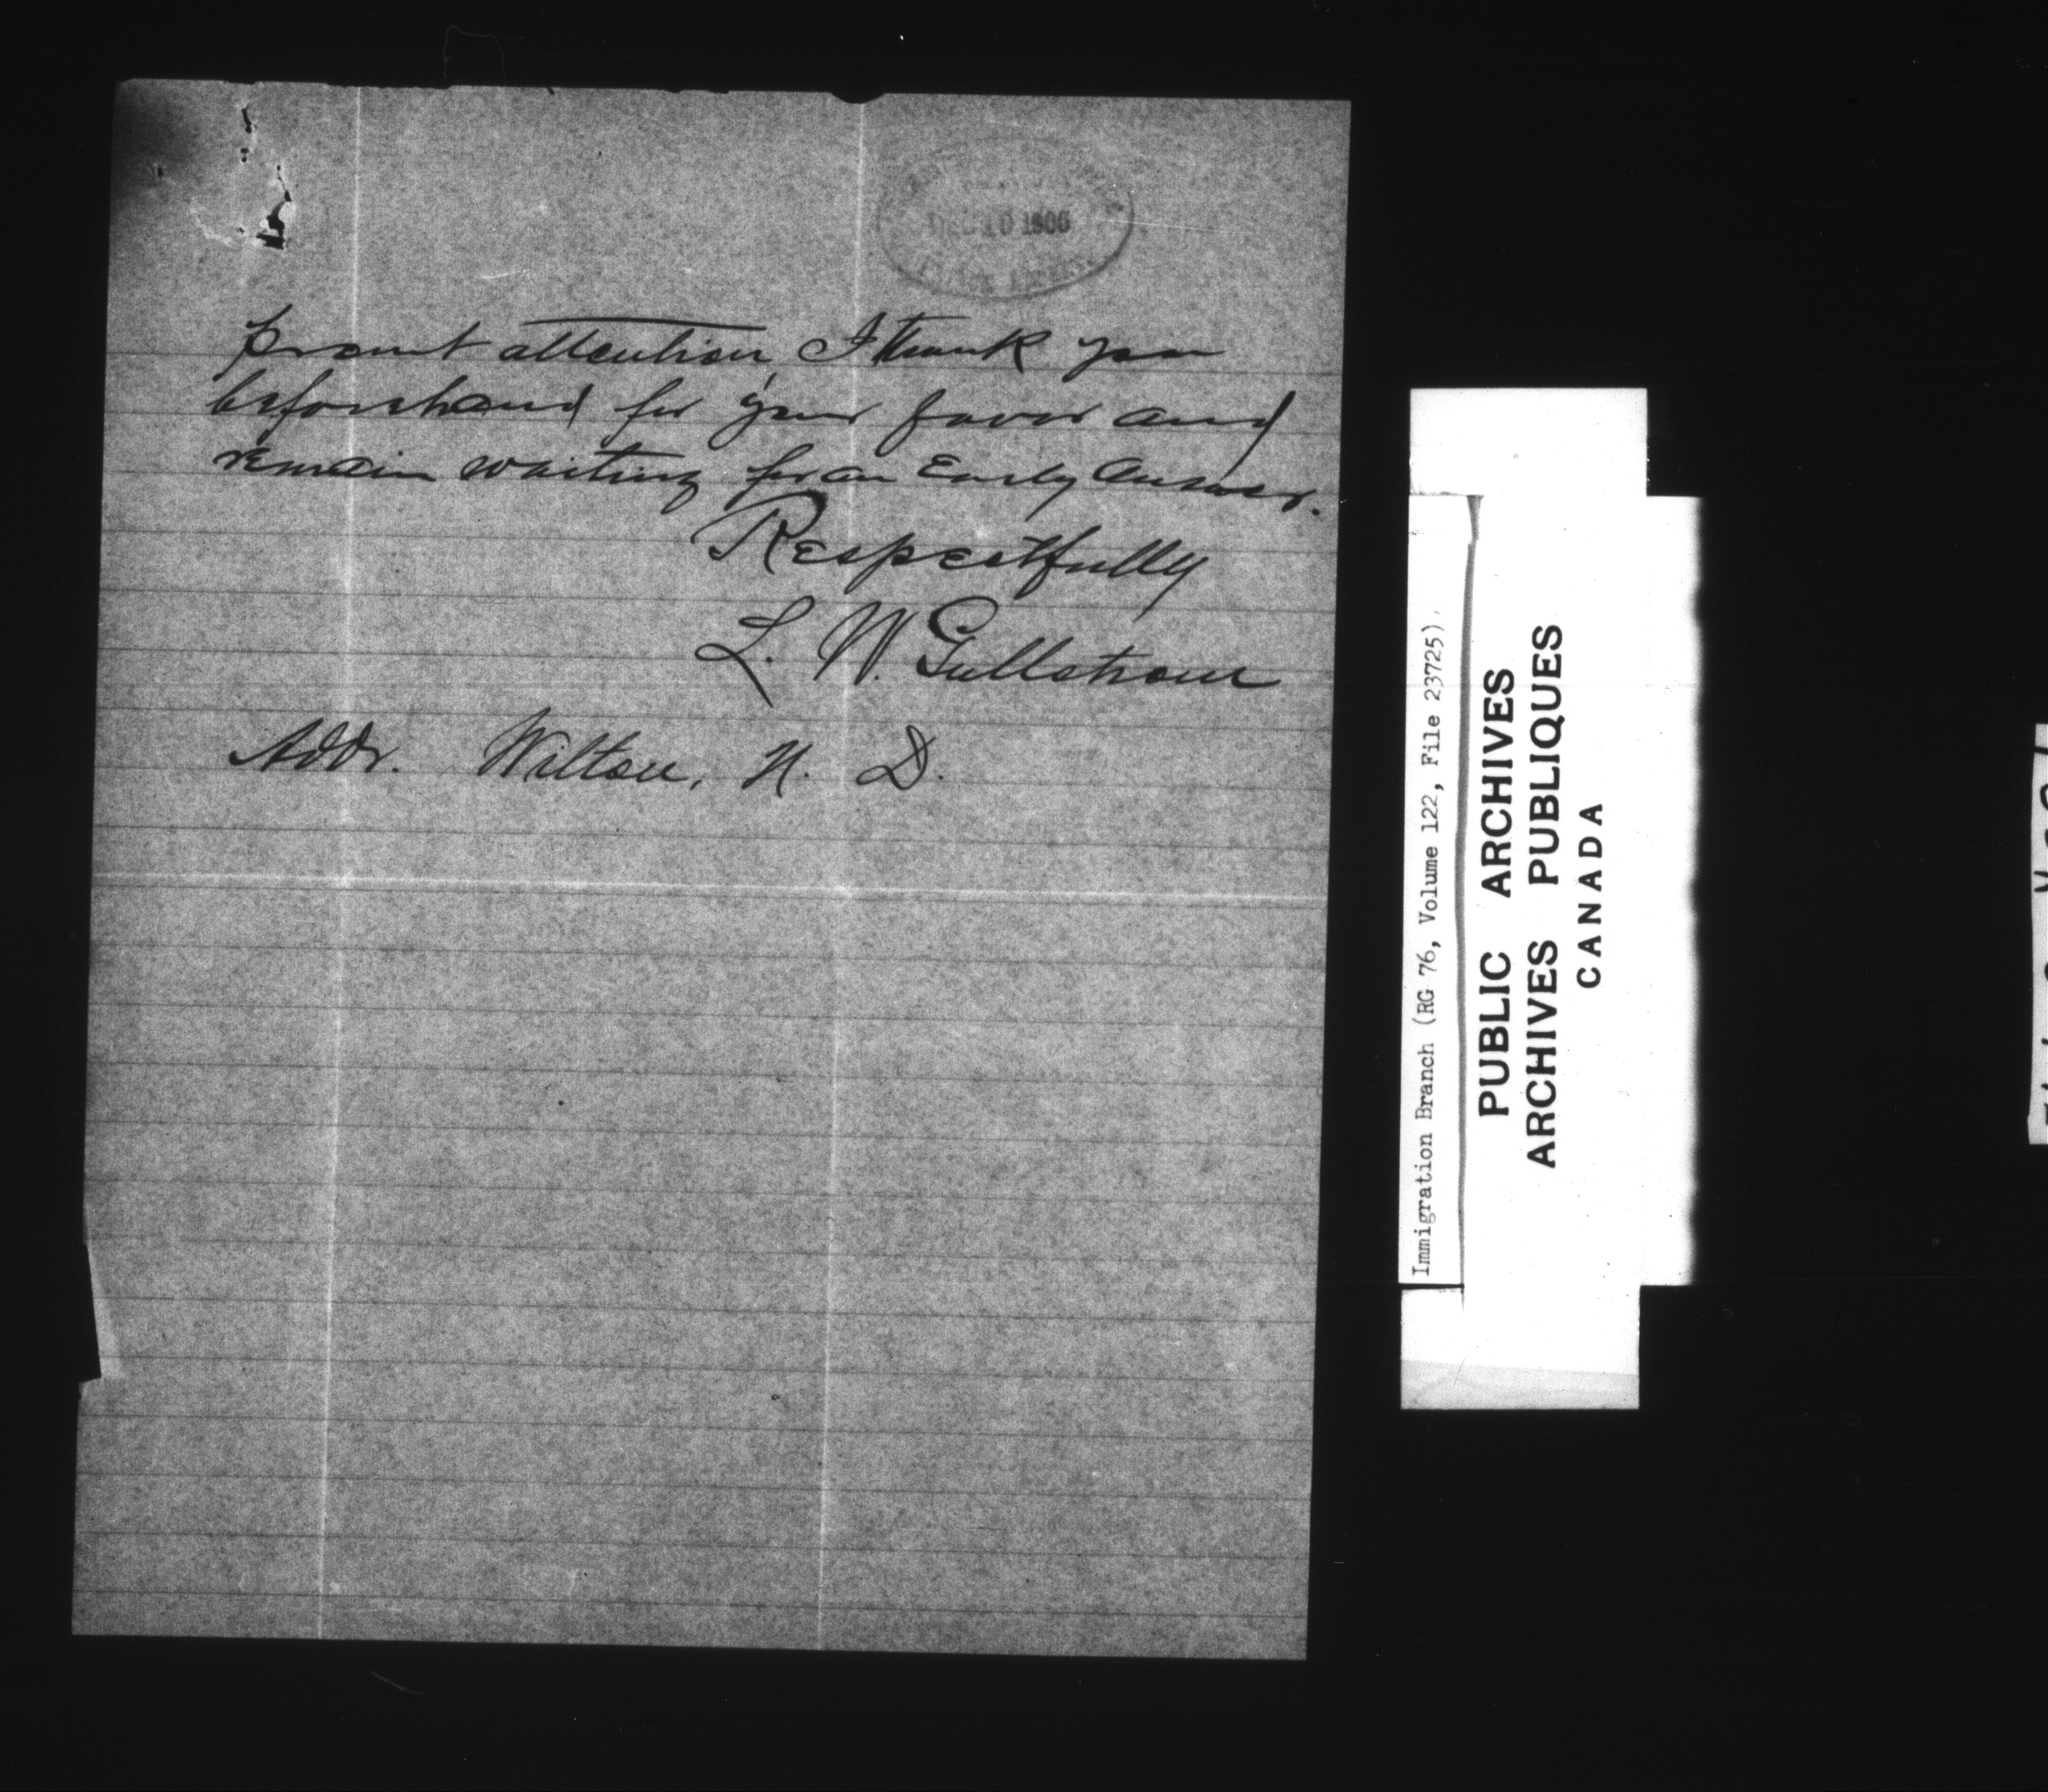 DEC 10 1906
promt attention, I thank you
beforehand for your favor and
remain waiting for an Early answer.
Respectfully
L. W. Gullstrom
Addr. Wilton, N. D.
Immigration Branch (RG 76, Volume 122, File 23725)
PUBLIC ARCHIVES
ARCHIVES PUBLIQUES
CANADA